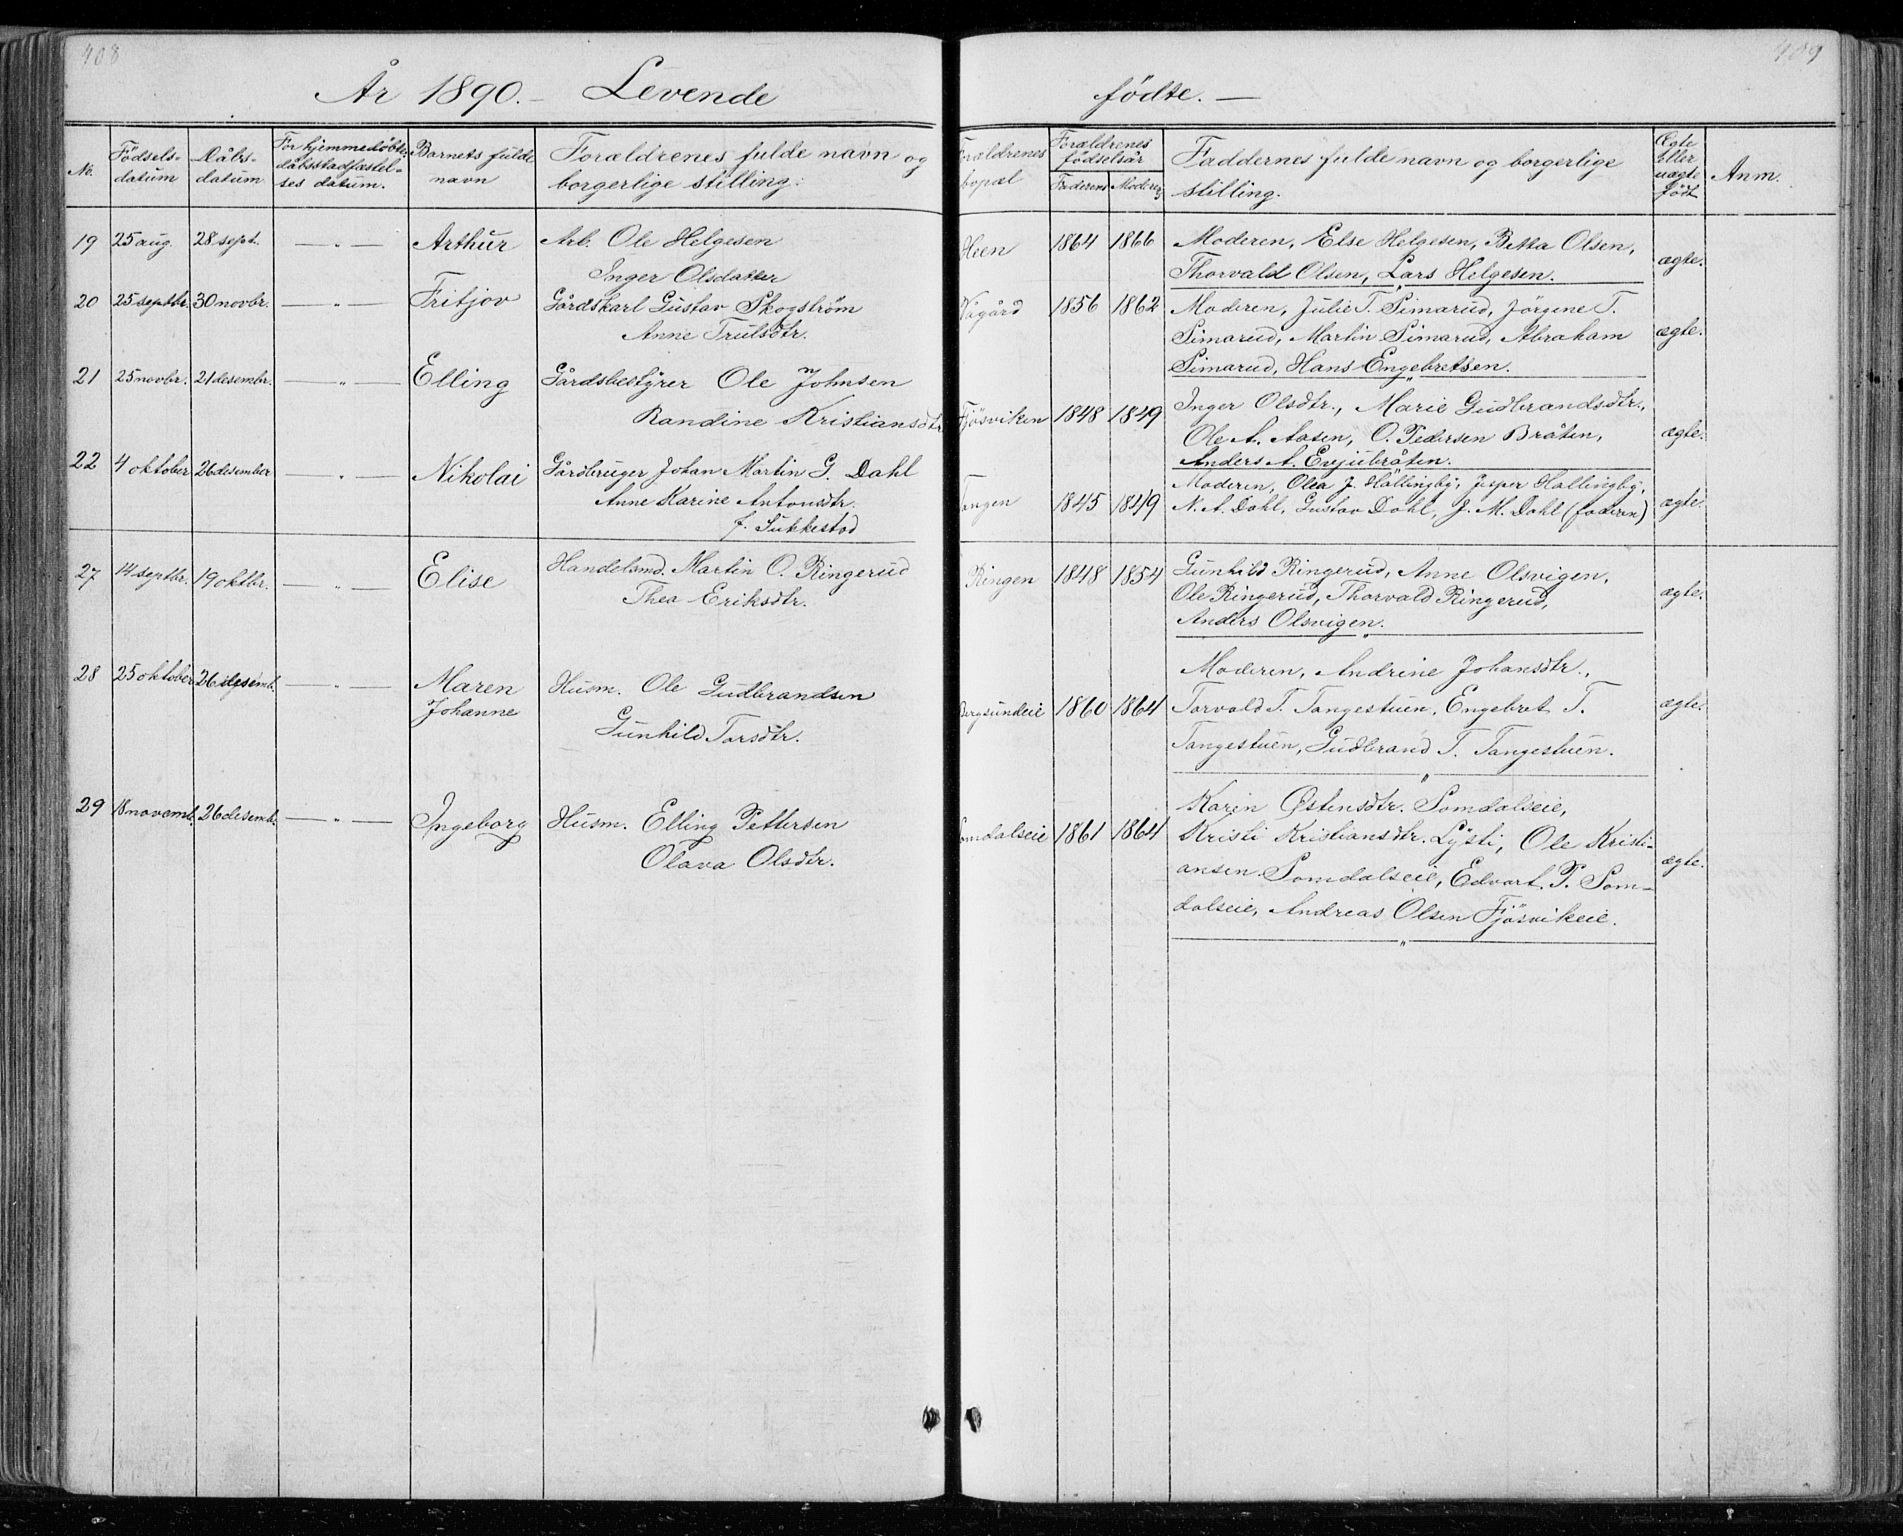 408
År 1890. – Levende
No.
Födsels-
datum
Dåbs-
datum
För hjemmedöbte
dåbsstadfæstel-
ses datum.
Barnets fulde
navn
Forældrenes fulde navn og
borgerlige stilling:
19 25 aug. 28 sept. — „ — Arthur Arb. Ole Helgesen
Inger Olsdatter
20 25 septbr. 30 novbr. — „ — Fritjov Gårdskarl Gustav Skogström
Anne Trulsdtr.
21 25 novbr. 21 desembr. — „ — Elling Gårdsbestyrer Ole Johnsen
Randine Kristiansdtr
22 4 oktober 26 desember — „ — Nikolai Gårdbruger Johan Martin G. Dahl
Anne Karine Antonsdtr.
f. Sukkestad
27 14 septbr. 19 oktbr. — „ — Elise Handelsmd. Martin O. Ringerud
Thea Eriksdtr.
28 25 oktober 26 desemb. — „ — Maren Husm. Ole Gudbrandsen
Johanne
Gunhild Torsdtr.
29 18 novemb. 26 desemb. — „ — Ingeborg Husm. Elling Pettersen
Olava Olsdtr.
409
fødte. —
Forældrenes
bopæl
Forældrenes
födselsår
Faderens Moderens
Faddernes fulde navn og borgerlige
stilling.
Ægte
eller
uægte
födt
Anm.
Heen 1864 1866 Moderen, Else Helgesen, Betta Olsen,
Thorvald Olsen, Lars Helgesen. ægte.
Vågård 1856 1862 Moderen, Julie T. Simarud, Jörgine T.
Simarud, Martin Simarud, Abraham ægte.
Simarud, Hans Engebretsen.
Fjösviken 1848 1849 Inger Olsdtr., Marie Gudbrandsdtr.,
Ole A. Aasen, O. Pedersen Bråten, ægte.
Anders A. Evjubråten.
Tangen 1845 1849 Moderen, Olea J. Hallingby, Jesper Hallingby,
N. A. Dahl, Gustav Dahl, J. M. Dahl (faderen) ægte.
Ringen 1848 1854 Gunhild Ringerud, Anne Olsvigen,
Ole Ringerud, Thorvald Ringerud, ægte.
Anders Olsvigen.
Moderen, Andrine Johansdtr.,
Bergsundeie 1860 1864 Torvald T. Tangestuen, Engebret T. ægte.
Tangestuen, Gudbrand T. Tangestuen.
Karin Østensdtr. Somdalseie,
Somdalseie 1861 1864 Kristi Kristiansdtr. Lysti, Ole Kristi-
ansen Somdalseie, Edvart P. Som- ægte.
dalseie, Andreas Olsen Fjösvikeie.